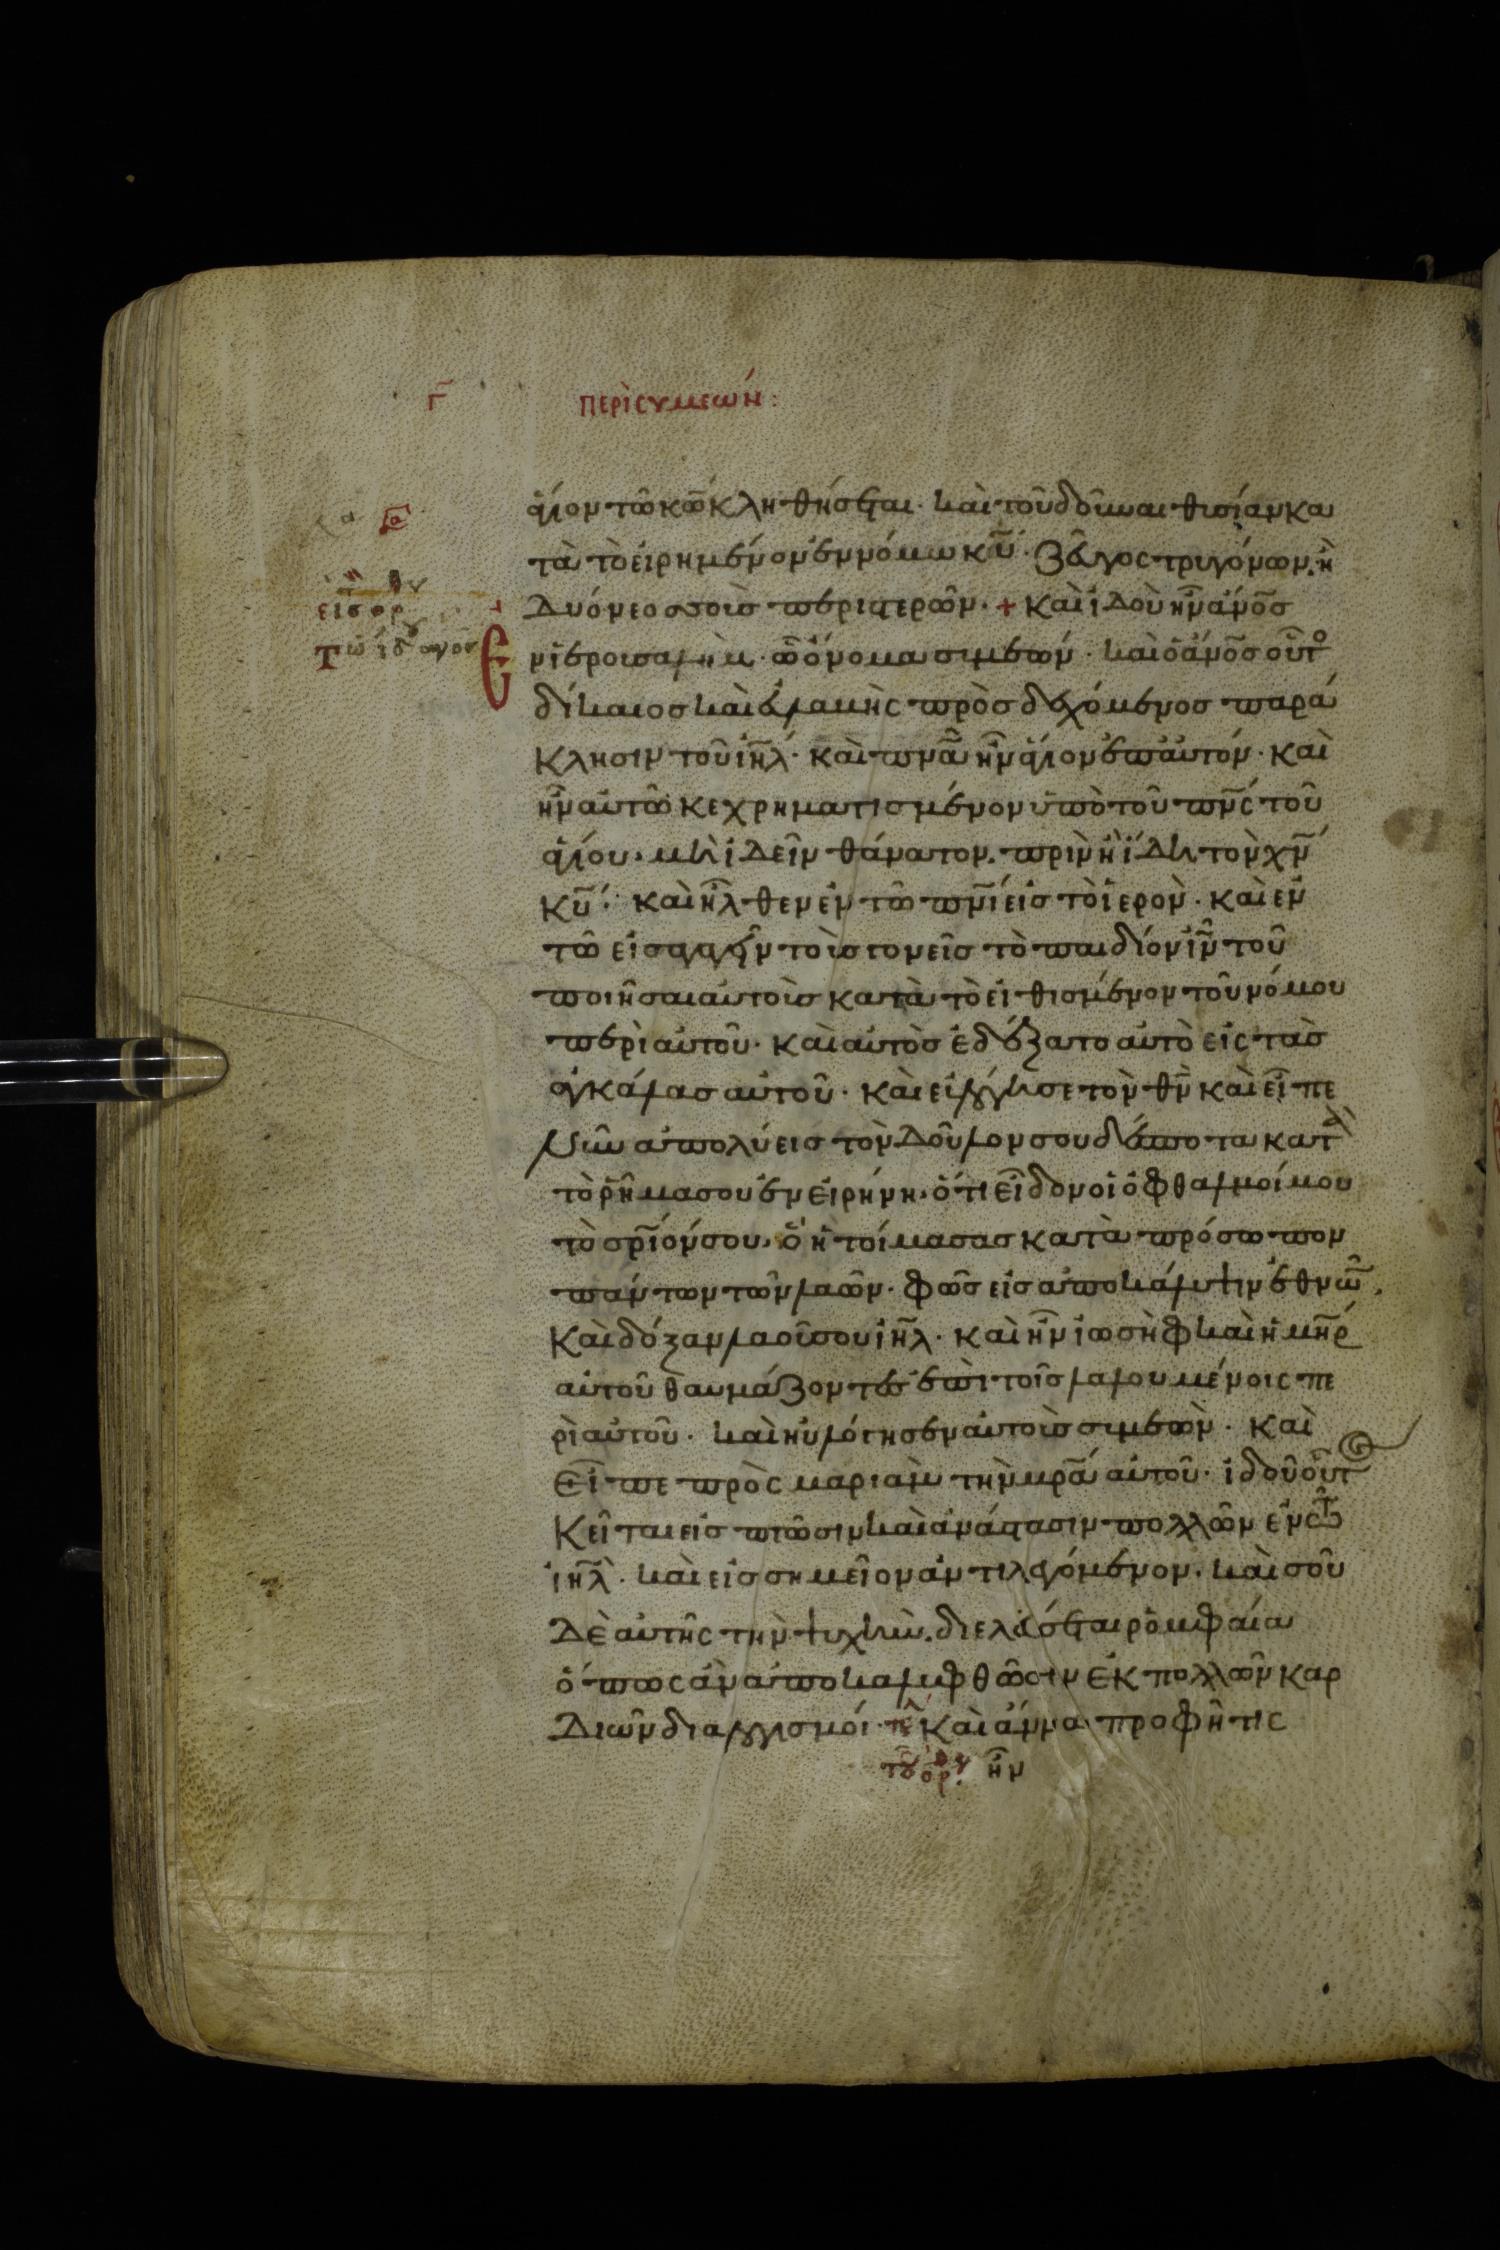 γ̅ περὶ συμεών:
ἅγιον τῶ κ̅ω̅ κληθήσεται· καὶ τοῦ δοῦναι θυσίαν κα
τὰ τὸ εἰρημένον ἐν νόμω κ̅υ̅· ζεῦγος τρυγόνων, ἢ
δύο νεοσσοὺσ περιστερῶν· + καὶ ἰδοὺ ἦν α̅ν̅ο̅σ̅
ἐν ἱερουσαλὴμ· ὧ ὄνομα συμεών· καὶ ὁ α̅ν̅ο̅σ̅ οὗτο
δίκαιοσ καὶ εὐλαβὴς προσδεχόμενοσ παρά
κλησιν τοῦ ι̅η̅λ̅· καὶ π̅ν̅α̅ ἦν ἅγιον ἐπ αὐτόν· καὶ
ἦν αὐτῶ κεχρηματισμένον ὑπὸ τοῦ π̅ν̅ς̅ τοῦ
ἁγίου· μὴ ἰδεῖν θάνατον, πρὶν ἢ ἴδη τὸν χ̅ν̅
κ̅υ̅· καὶ ἦλθεν ἐν τῶ π̅ν̅ι̅ εἰσ τὸ ἱερὸν· καὶ ἐν
τῶ εἰσαγαγεῖν τοὺσ γονεῖσ τὸ παιδίον ι̅ν̅ τοῦ
ποιῆσαι αὐτοὺσ κατὰ τὸ εἰθισμένον τοῦ νόμου
περὶ αὐτοῦ· καὶ αὐτὸσ ἐδέξατο αὐτὸ εἰς τὰσ
ἀγκάλασ αὐτοῦ· καὶ εὐλόγησε τὸν θ̅ν̅ καὶ εἶπε
νῦν ἀπολύεισ τὸν δοῦλον σου δέσποτα κατὰ
τὸ ῥῆμα σου ἐν εἰρήνη· ὅτι εἶδον οἱ ὀφθαλμοί μου
τὸ σ̅ρ̅ι̅όν σου, ὃ ἡτοίμασασ κατὰ πρόσωπον
πάντων τῶν λαῶν· φῶσ εἰσ ἀποκάλυψιν ἐθνῶν,
καὶ δόξαν λαοῦ σου ι̅η̅λ̅· καὶ ἦν ἰωσὴφ καὶ ἡ μ̅η̅ρ̅
αὐτοῦ θαυμάζοντες ἐπὶ τοῖσ λαλουμένοις πε
ρὶ αὐτοῦ· καὶ ηὐλόγησεν αὐτοὺσ συμεὼν· καὶ
εἶπε πρὸς μαριὰμ τὴν μ̅ρ̅α̅ αὐτοῦ· ἰδοὺ οὗτος
κεῖται εἰσ πτῶσιν καὶ ἀνάστασιν πολλῶν ἐν τῶ
ι̅η̅λ̅· καὶ εἰσ σημεῖον ἀντιλεγόμενον· καὶ σοῦ
δὲ αὐτῆς τὴν ψυχὴν, διελεύσεται ῥομφαία
ὅπως ἂν ἀποκαλυφθῶσιν ἐκ πολλῶν καρ
διῶν διαλογισμοί· καὶ ἄννα προφῆτις
ἦν